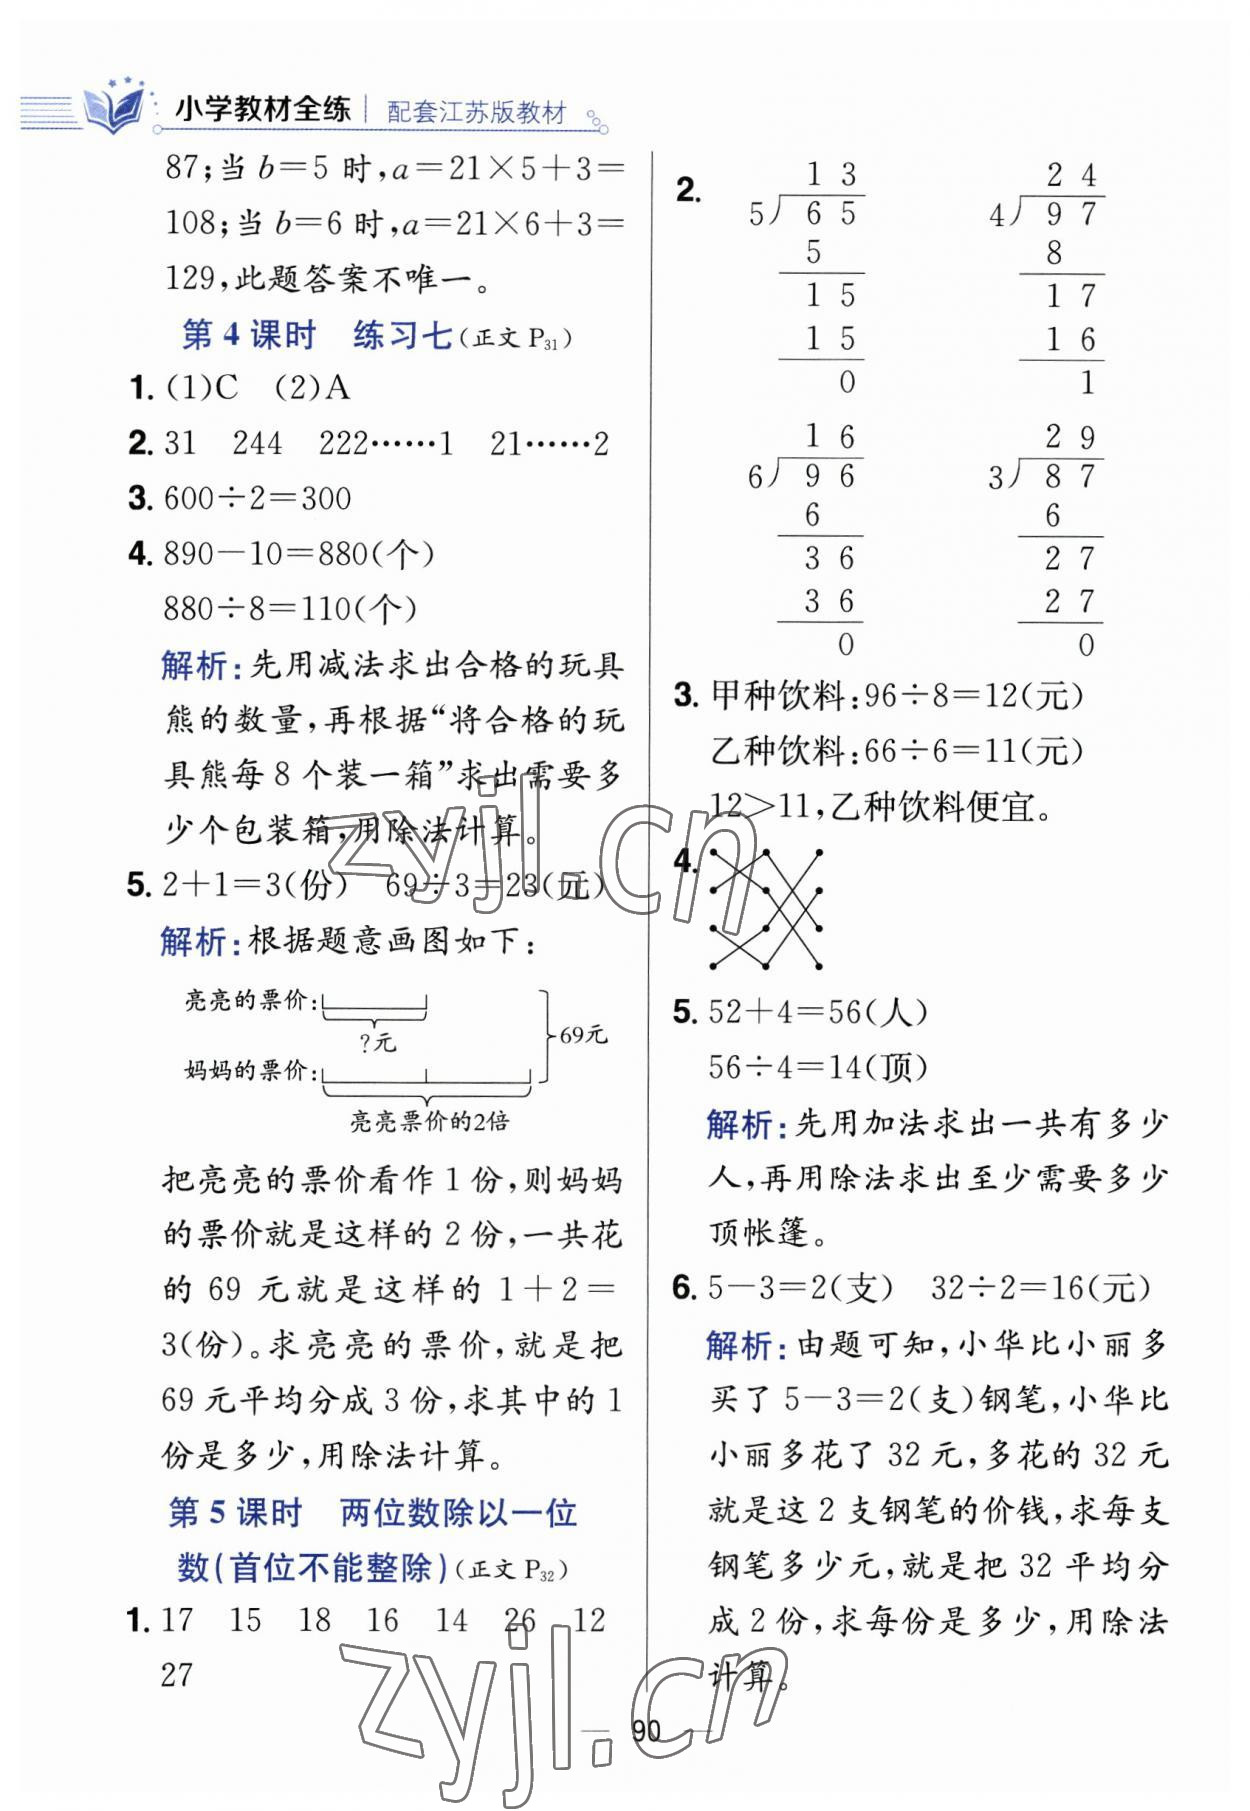 小学教材全练 配套江苏版教材
87;当 b=5 时,a=21×5+3=
108;当 b=6 时,a=21×6+3=
129,此题答案不唯一。
第 4 课时 练习七(正文 P31)
1. (1)C (2)A
2. 31 244 222……1 21……2
3. 600÷2=300
4. 890-10=880(个)
880÷8=110(个)
解析:先用减法求出合格的玩具
熊的数量,再根据“将合格的玩
具熊每 8 个装一箱”求出需要多
少个包装箱,用除法计算。
5. 2+1=3(份) 69÷3=23(元)
解析:根据题意画图如下:
亮亮的票价:
?元
69元
妈妈的票价:
亮亮票价的2倍
把亮亮的票价看作 1 份,则妈妈
的票价就是这样的 2 份,一共花
的 69 元就是这样的 1+2=
3(份)。求亮亮的票价,就是把
69 元平均分成 3 份,求其中的 1
份是多少,用除法计算。
第 5 课时 两位数除以一位
数(首位不能整除)(正文 P32)
1. 17 15 18 16 14 26 12
27
2.
1 3
5 6 5
5
1 5
1 5
0
2 4
4 9 7
8
1 7
1 6
1
1 6
6 9 6
6
3 6
3 6
0
2 9
3 8 7
6
2 7
2 7
0
3. 甲种饮料:96÷8=12(元)
乙种饮料:66÷6=11(元)
12>11,乙种饮料便宜。
4.
5. 52+4=56(人)
56÷4=14(顶)
解析:先用加法求出一共有多少
人,再用除法求出至少需要多少
顶帐篷。
6. 5-3=2(支) 32÷2=16(元)
解析:由题可知,小华比小丽多
买了 5-3=2(支)钢笔,小华比
小丽多花了 32 元,多花的 32 元
就是这 2 支钢笔的价钱,求每支
钢笔多少元,就是把 32 平均分
成 2 份,求每份是多少,用除法
计算。
— 90 —
zyjl.cn
zyjl.cn